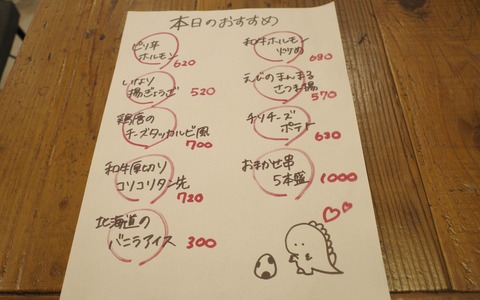 本日のおすすめ
ピリ辛
ホルモン 620
いなり
揚ぎょうざ 520
鶏唐の
チーズタッカルビ風
700
和牛厚切り
コリコリタン先
720
北海道の
バニラアイス 300
和牛ホルモン
炒め 680
えびのまんまる
さつま揚
570
チリチーズ
ポテト
630
おまかせ串
5本盛 1000